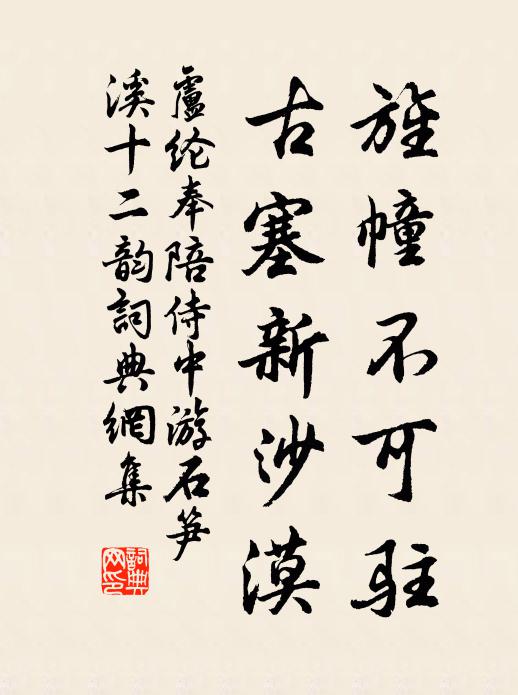 旌幢不可驻
古塞新沙漠
盧纶奉陪侍中游石笋
溪十二韵詞典網集
詞典
网印